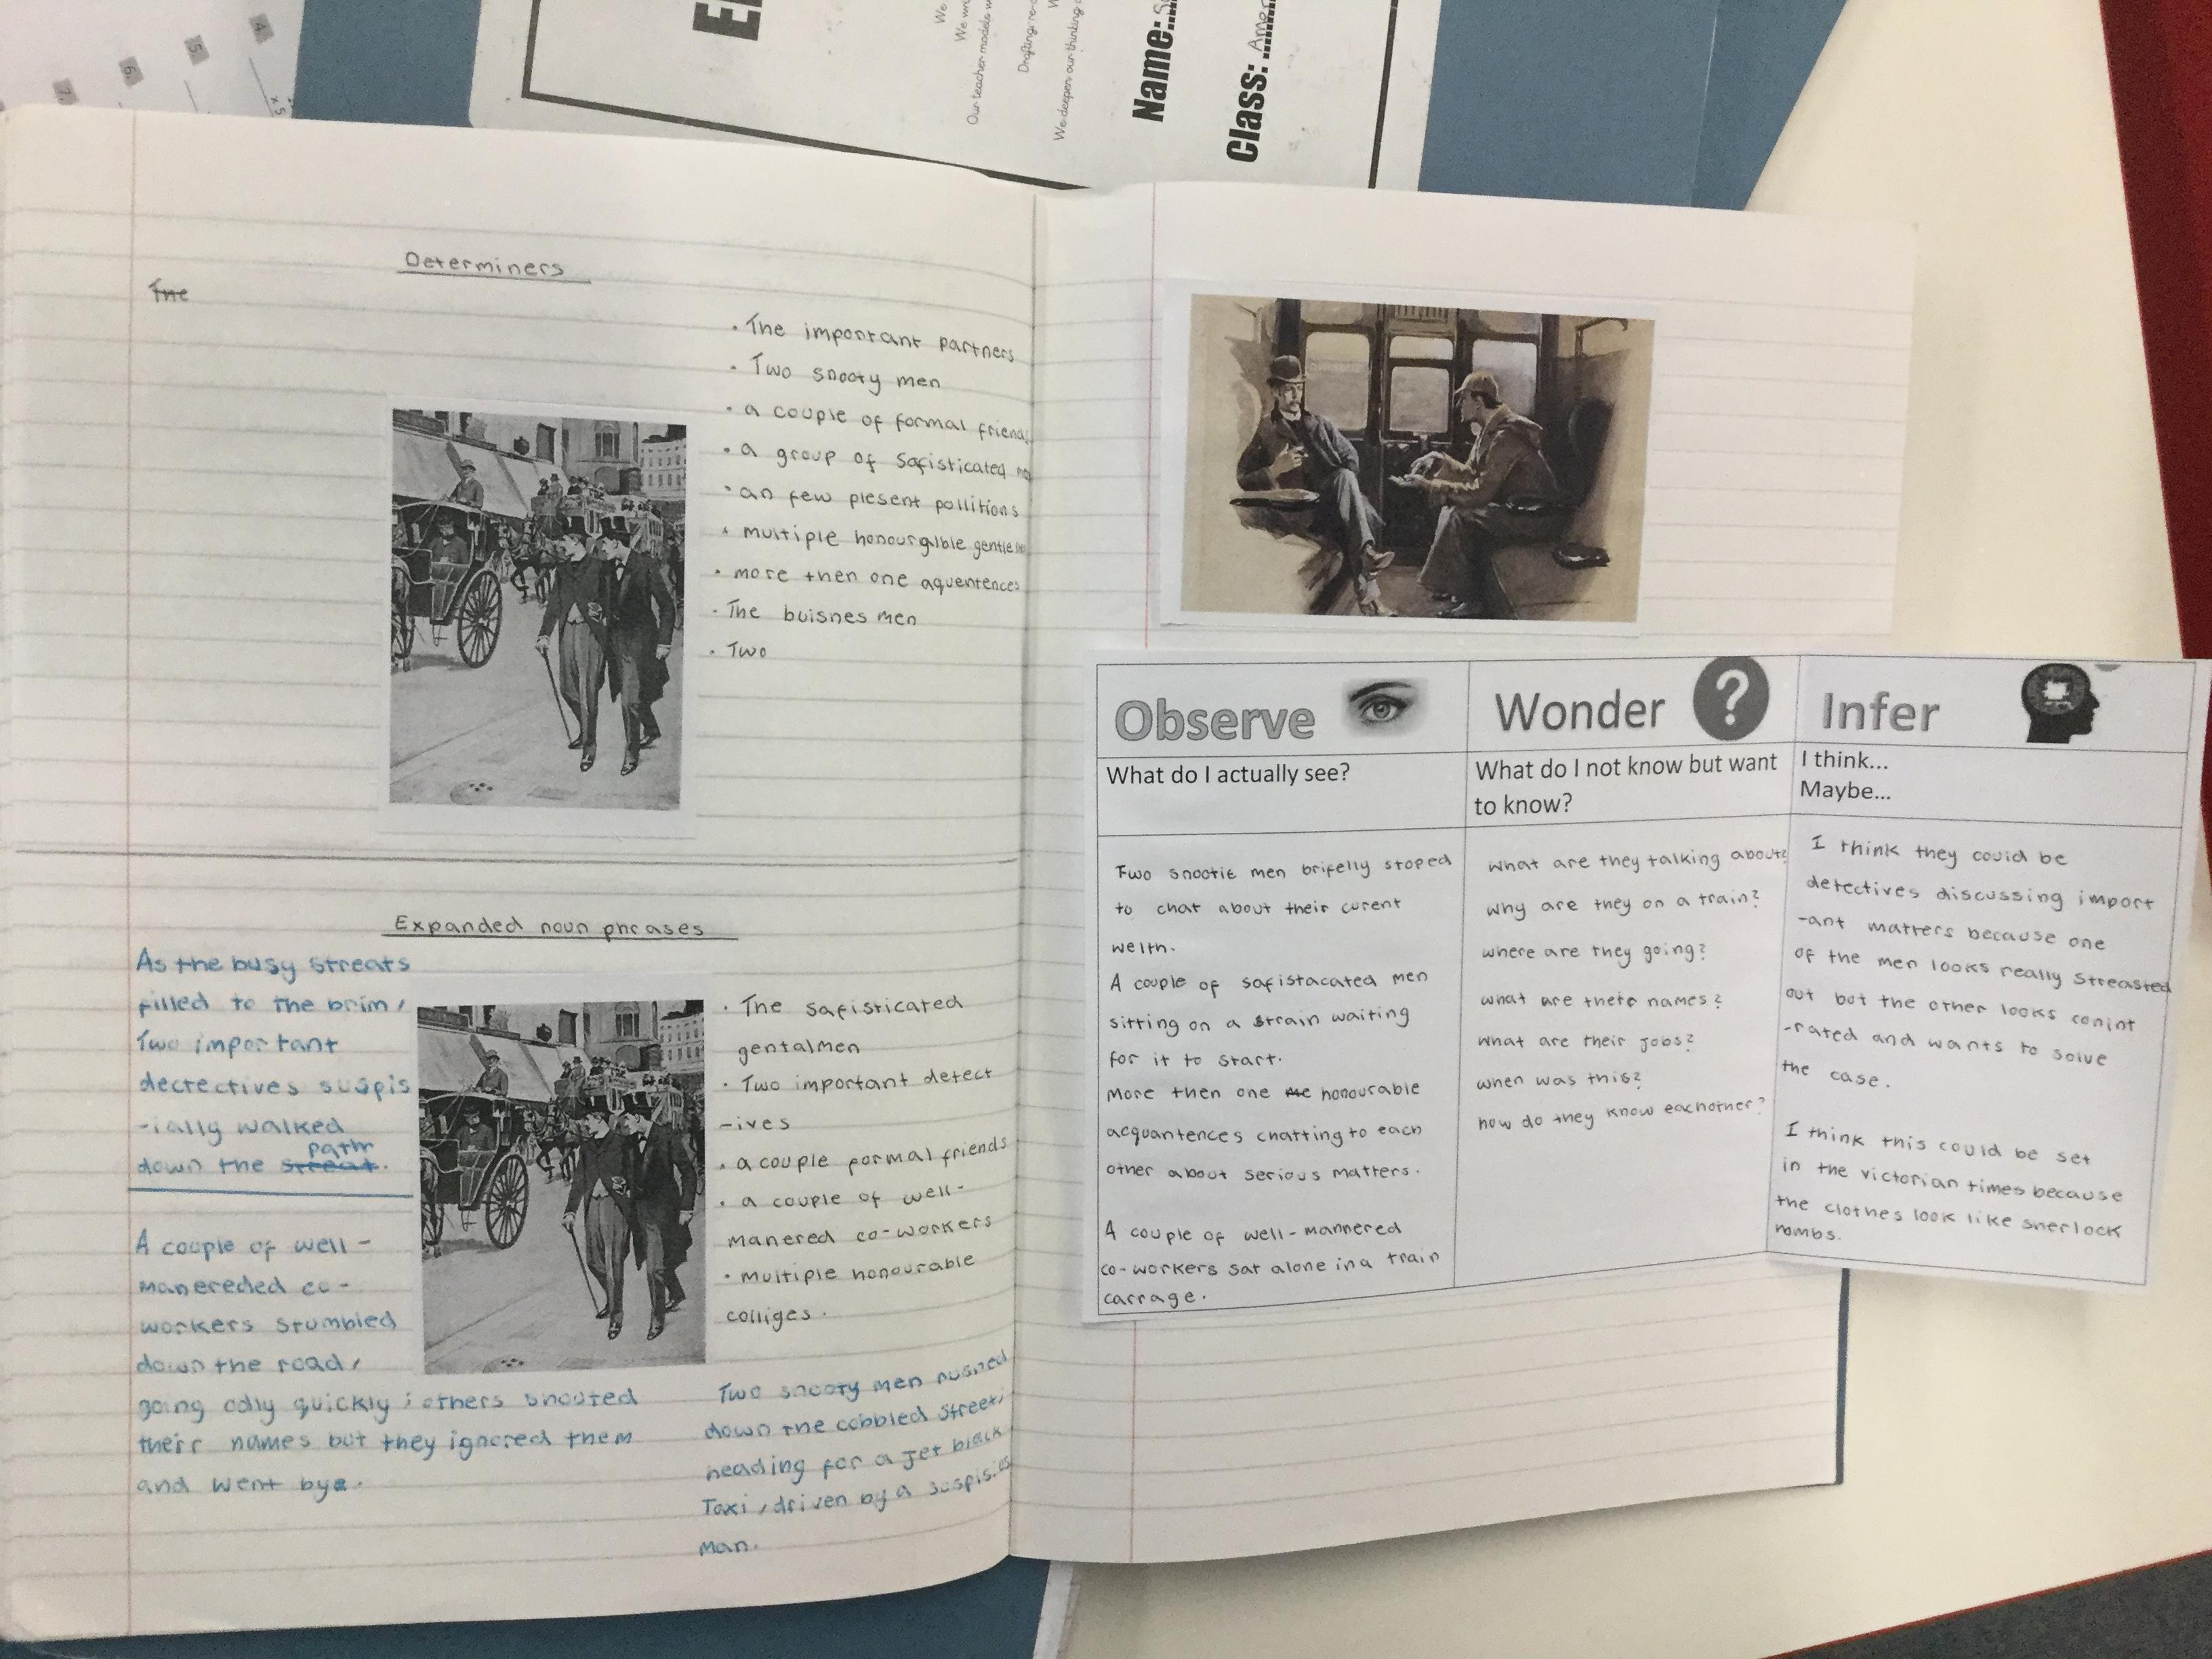 4.
5.
6.
7.
x 5
El
We
We wr
Our teacher models w
Drafting re-c
We deepen our thinking
Name:
Class: Amer
Determiners
The
· The important partners
· Two snooty men
· a couple of formal friend
· a group of Safisticated
· an few plesent pollitions
· multiple honourgible gentle
· more then one aquentences
· The buisnes men
· Two
Expanded noun phrases
As the busy streats
filled to the brim,
Two important
dectectives suspis
-ially walked
path
down the streat.
A couple of well-
manereded co-
workers stumbled
down the road,
going odly quickly ; others shouted
their names but they ignored them
and went bye.
· The safisticated
gentalmen
· Two important detect
-ives
· a couple formal friends
· a couple of well-
manered co-workers
· multiple honourable
colliges.
Two snooty men rushed
down the cobbled street,
heading for a jet black
Taxi, driven by a suspisios
man.
Observe
What do I actually see?
Two snootie men brifelly stoped
to chat about their curent
welth.
A couple of safistacated men
sitting on a train waiting
for it to start.
more then one me honourable
acquantences chatting to each
other about serious matters.
A couple of well-mannered
co-workers sat alone in a train
carrage.
Wonder ?
What do I not know but want
to know?
what are they talking about?
why are they on a train?
where are they going?
what are there names?
what are their jobs?
when was this?
how do they know eachother?
Infer
I think...
Maybe...
I think they could be
detectives discussing import
-ant matters because one
of the men looks really streasted
out but the other looks conint
-rated and wants to solve
the case.
I think this could be set
in the victorian times because
the clothes look like sherlock
hombs.